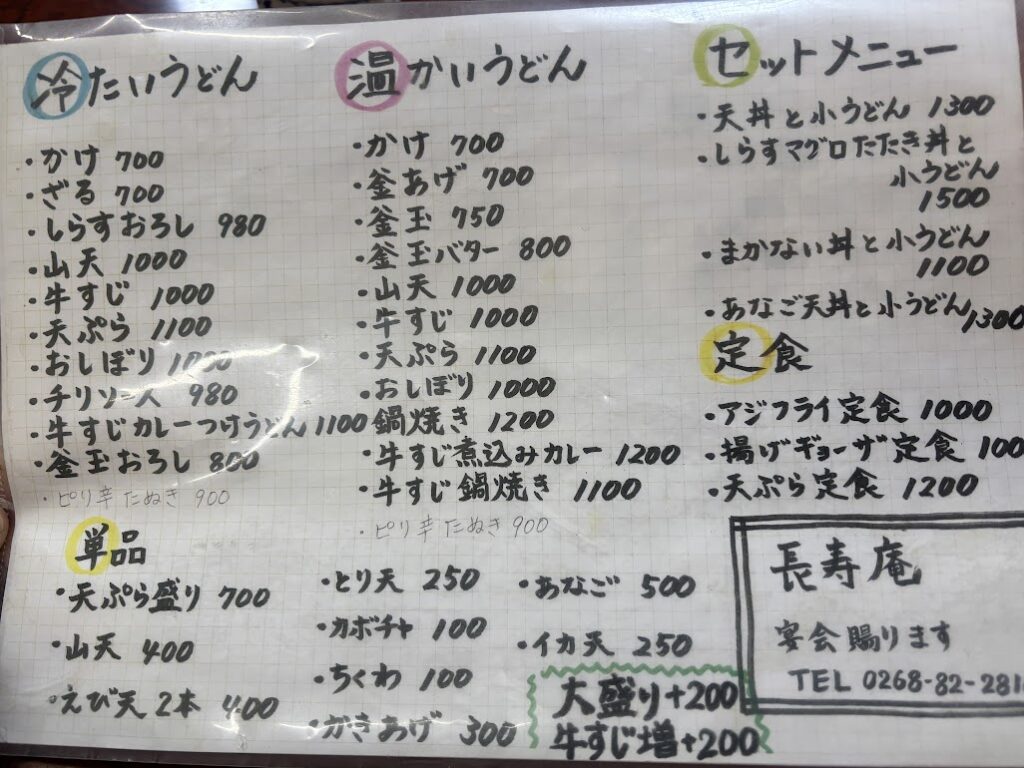 冷たいうどん
・かけ 700
・ざる 700
・しらすおろし 980
・山天 1000
・牛すじ 1000
・天ぷら 1100
・おしぼり 1000
・チリソース 980
・牛すじカレーつけうどん 1100
・釜玉おろし 800
・ピリ辛たぬき 900
温かいうどん
・かけ 700
・釜あげ 700
・釜玉 750
・釜玉バター 800
・山天 1000
・牛すじ 1000
・天ぷら 1100
・おしぼり 1000
鍋焼き 1200
・牛すじ煮込みカレー 1200
・牛すじ鍋焼き 1100
・ピリ辛たぬき 900
セットメニュー
・天丼と小うどん 1300
・しらすマグロたたき丼と
小うどん
1500
・まかない丼と小うどん
1100
・あなご天丼と小うどん 1300
定食
・アジフライ定食 1000
・揚げギョーザ定食 100
・天ぷら定食 1200
単品
・天ぷら盛り 700
・山天 400
・えび天2本 400
・とり天 250
・カボチャ 100
・ちくわ 100
・かきあげ 300
・あなご 500
・イカ天 250
大盛り+200
牛すじ増+200
長寿庵
宴会賜ります
TEL 0268-82-281